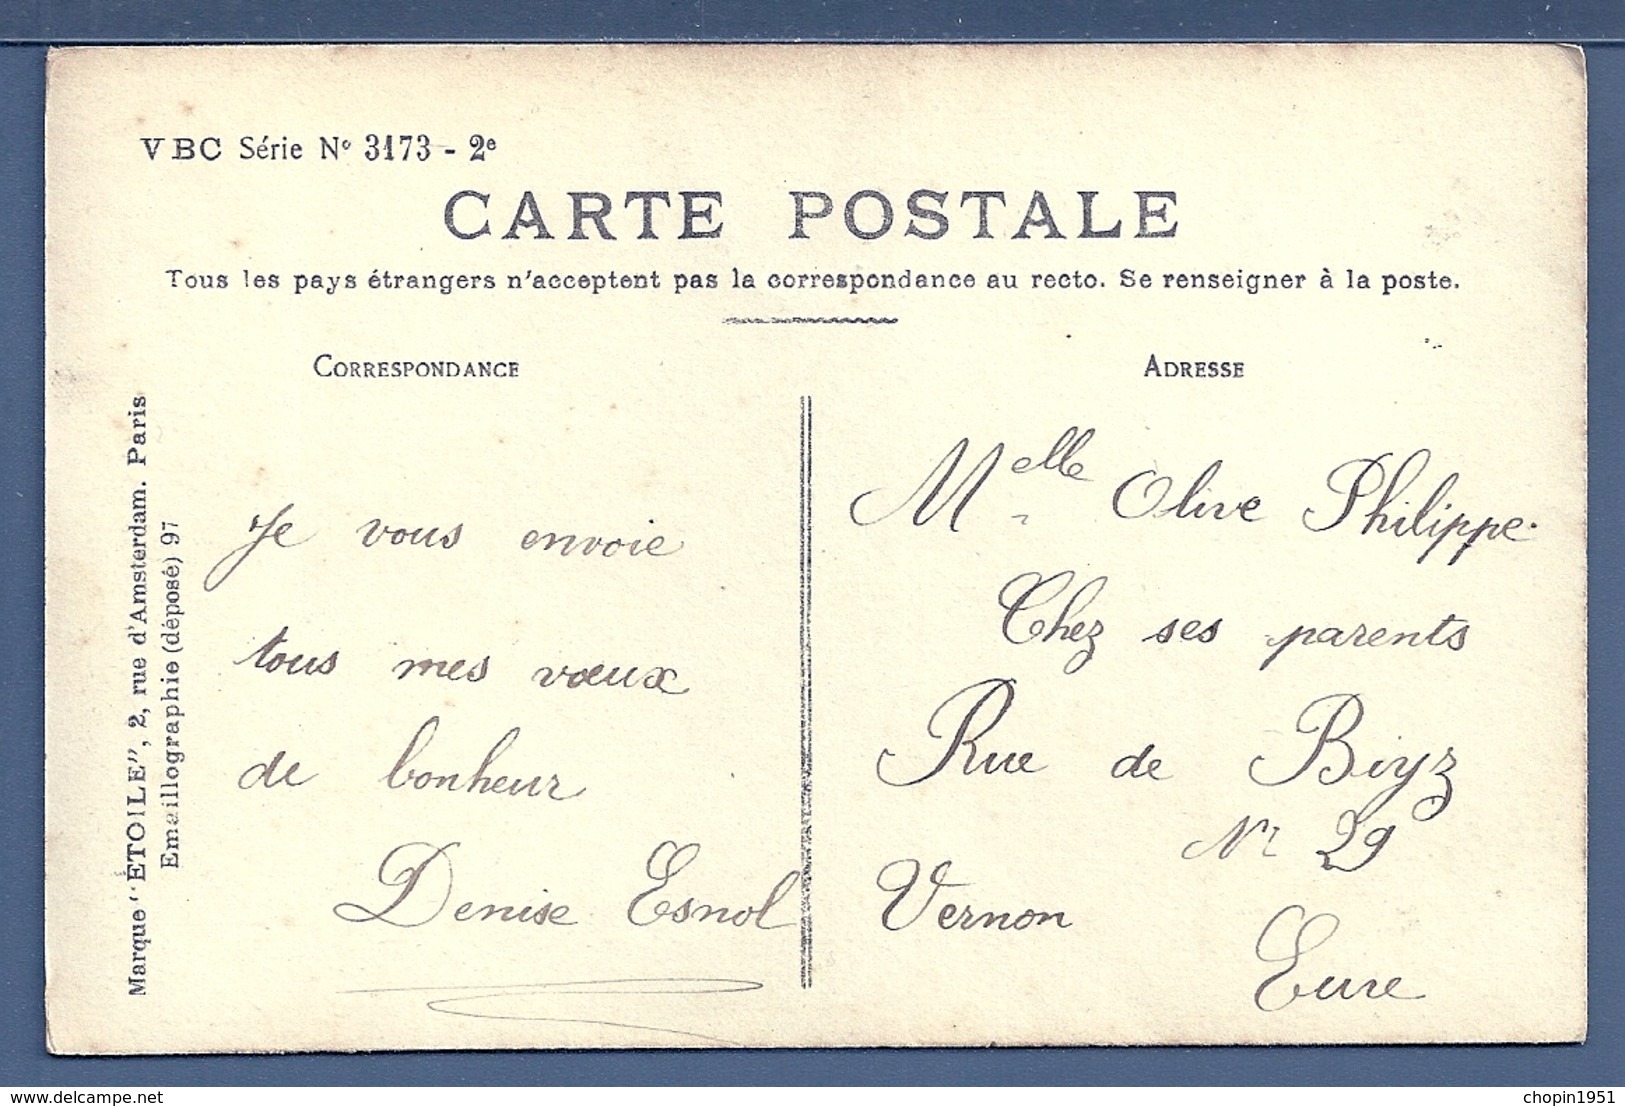 VBC Série Nº 3173 - 2e
CARTE POSTALE
Tous les pays étrangers n'acceptent pas la correspondance au recto. Se renseigner à la poste.
CORRESPONDANCE
ADRESSE
Marque "ÉTOILE", 2, rue d'Amsterdam. Paris
Emaillographie (déposé) 97
Je vous envoie
tous mes vœux
de bonheur
Denise Esnol
Melle Olive Philippe.
Chez ses parents
Rue de Biyz
Nº 29
Vernon
Eure
www.delcampe.net
chopin1951